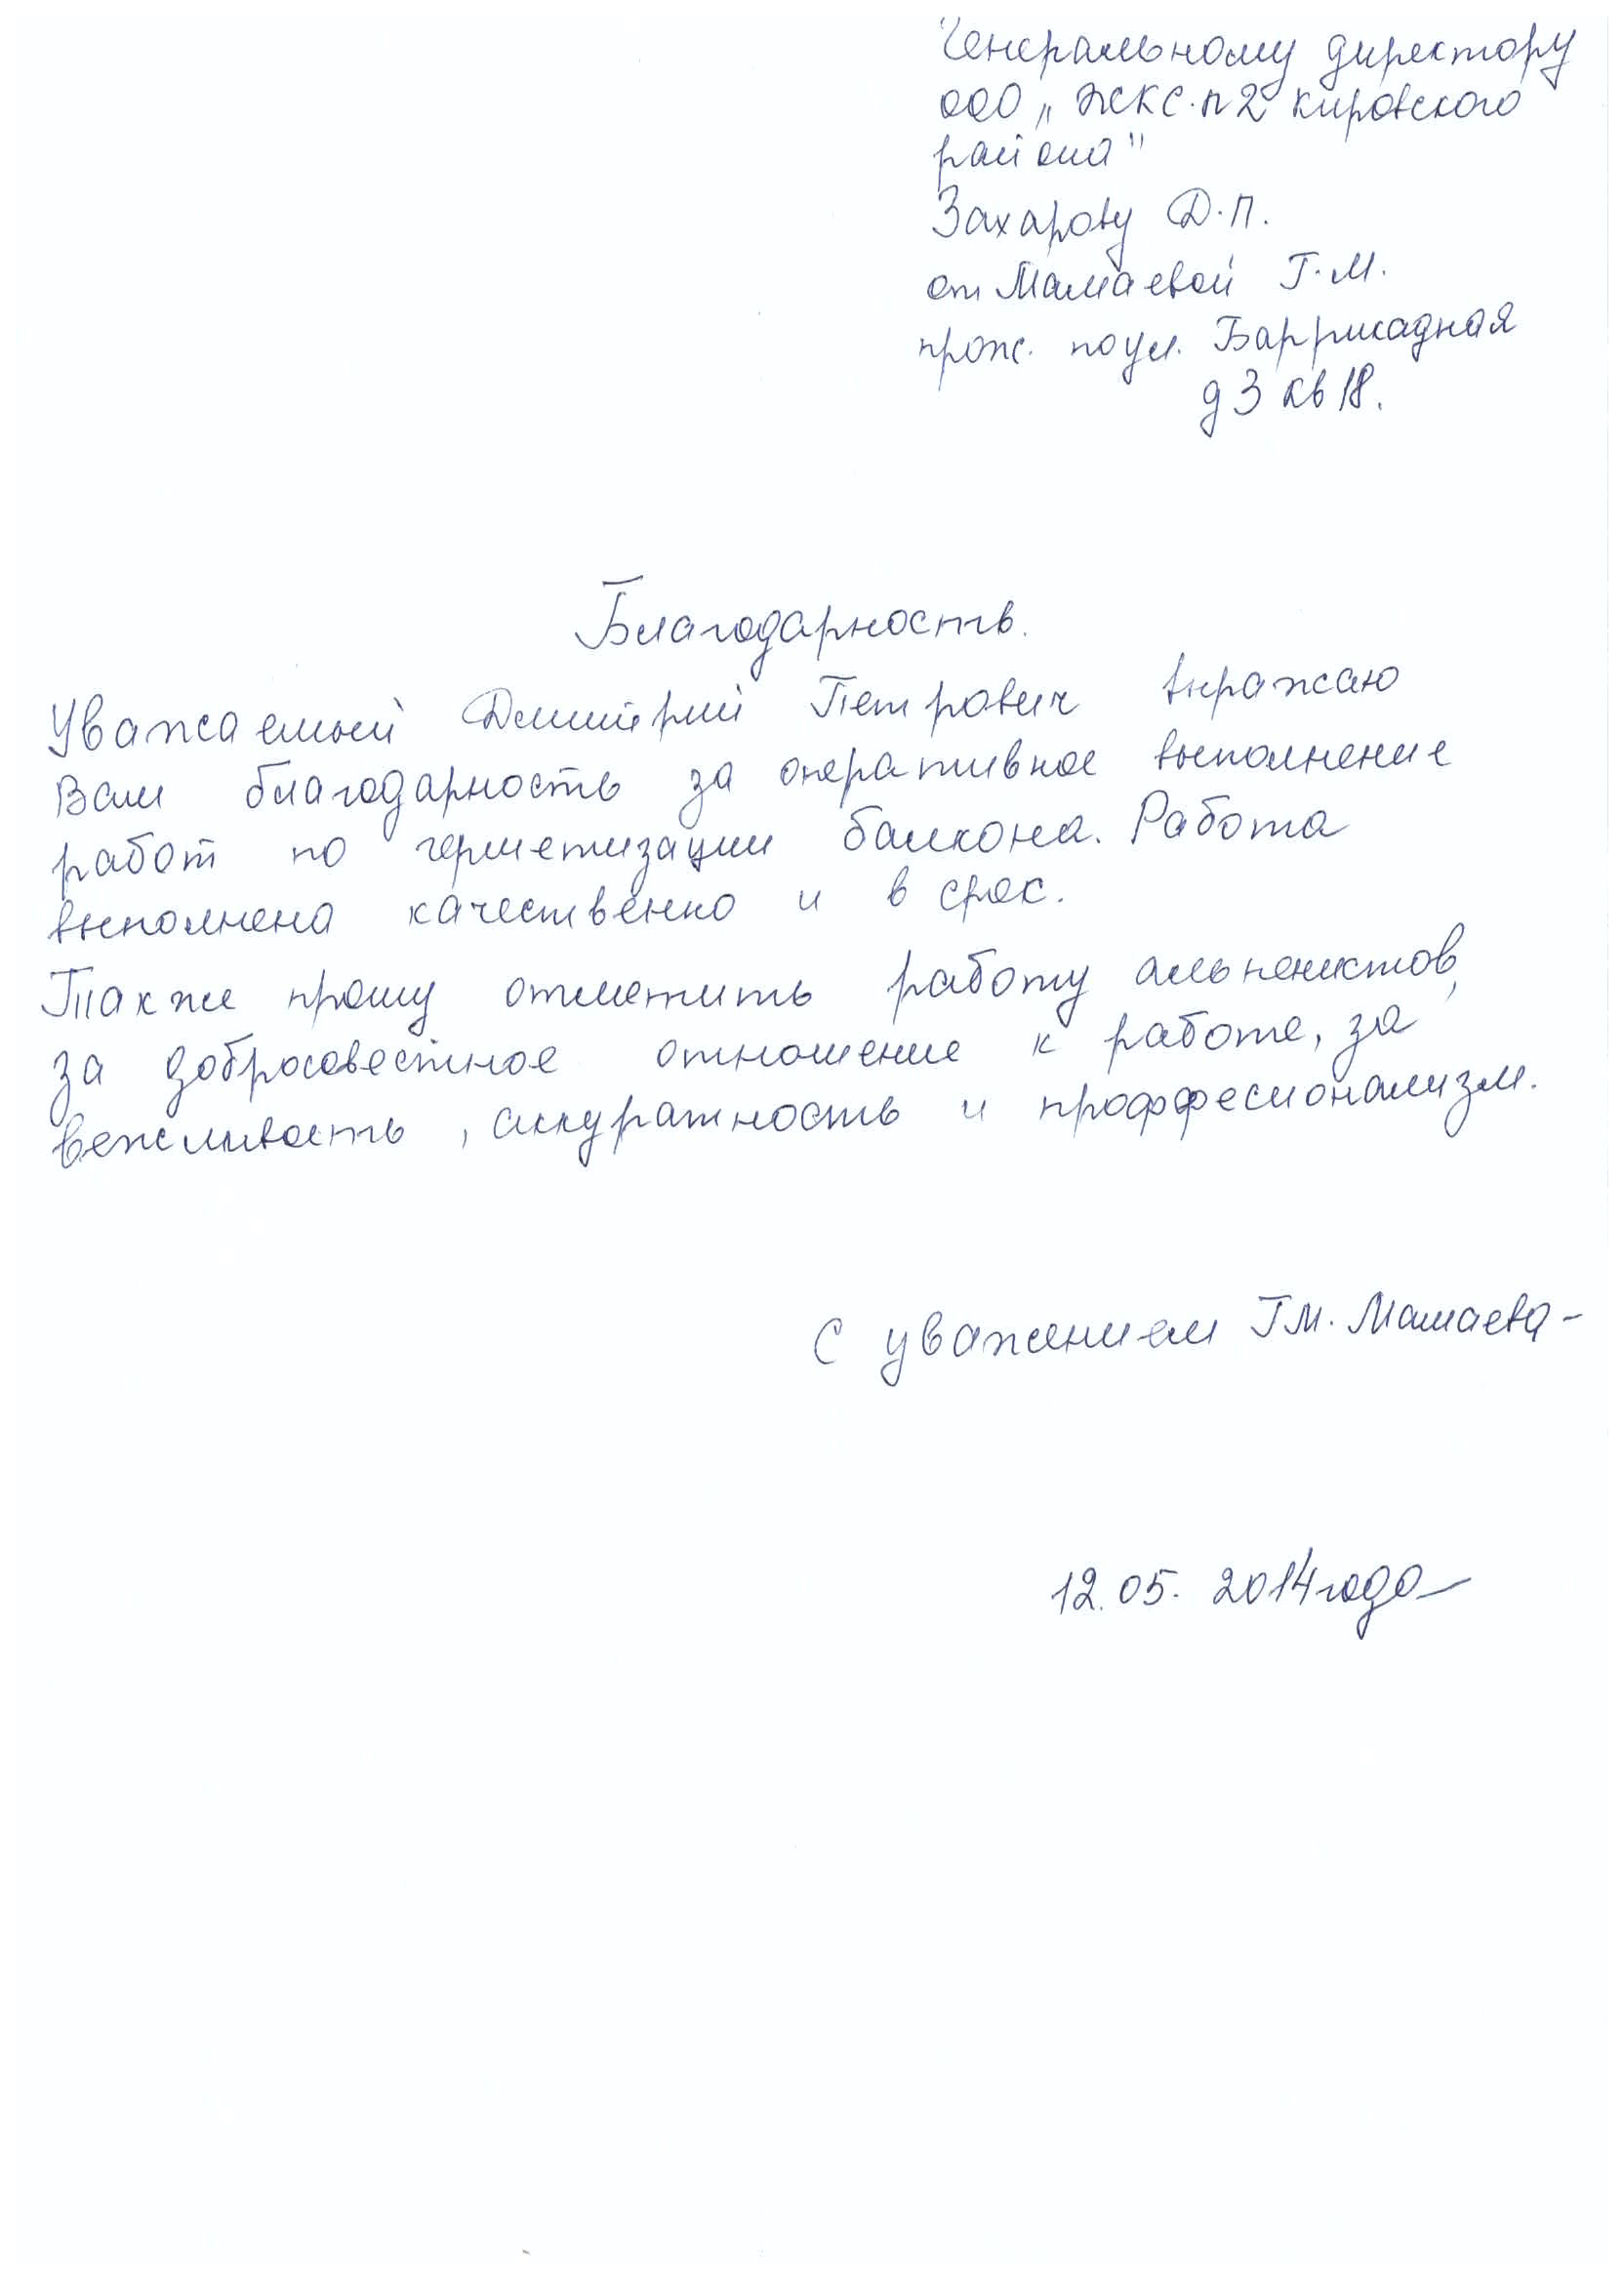 Генеральному директору
ООО „ЖКС·п 2 Кировского
района"
Захарову Д.П.
от Мамаевой Г.М.
прож. по ул. Баррикадная
д 3 кв 18.
Благодарность.
Уважаемый Дмитрий Петрович выражаю
Вам благодарность за оперативное выполнение
работ по герметизации балкона. Работа
выполнена качественно и в срок.
Также прошу отметить работу альпенистов,
за добросовестное отношение к работе, за
вежливость, аккуратность и проффесионализм.
С уважением Г.М. Мамаева-
12.05. 2014 года